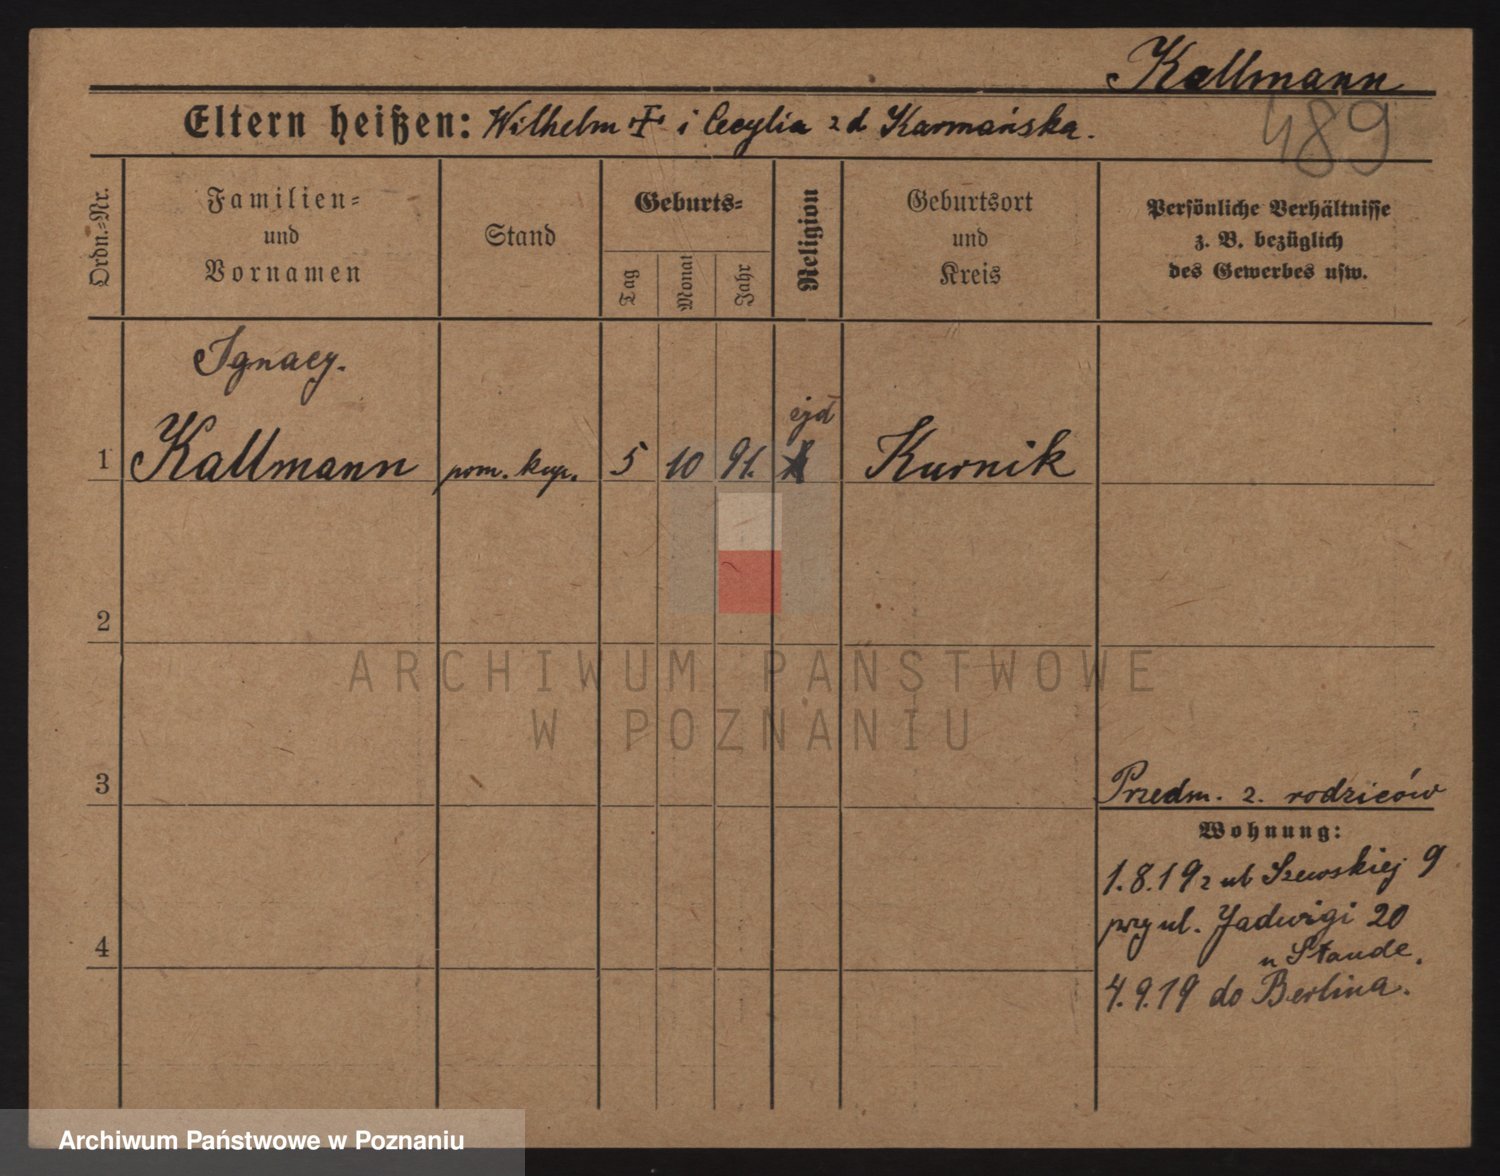 Kallmann
489
Eltern heißen: Wilhelm i Cecylia z d Karmańska.
Ordn.-Nr.
Familien-
und
Vornamen
Stand
Geburts-
Tag
Monat
Jahr
Religion
Geburtsort
und
Kreis
Persönliche Verhältnisse
z. B. bezüglich
des Gewerbes usw.
Ignacy.
1 Kallmann pom. kup. 5 10 91. Kurnik
2
ARCHIWUM PAŃSTWOWE
W POZNANIU
3
Przedm. z. rodziców
Wohnung:
1.8.19 z ul Szewskiej 9
przy ul. Jadwigi 20
4
u Staude.
4.9.19 do Berlina.
Archiwum Państwowe w Poznaniu